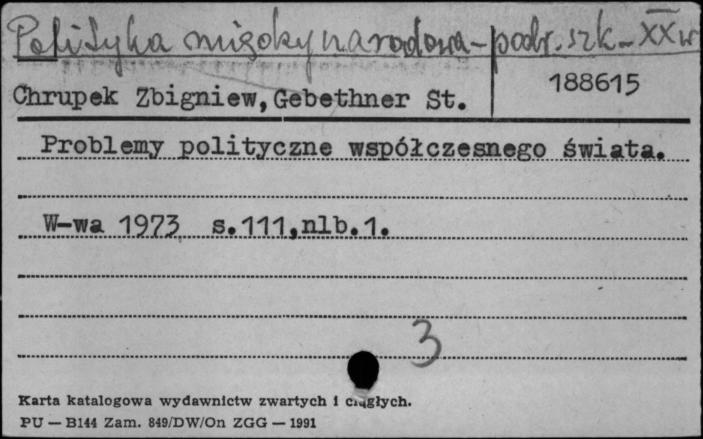 Polityka międzynarodowa - podr. szk. - XX w
Chrupek Zbigniew, Gebethner St.
188615
Problemy polityczne współczesnego świata.
W-wa 1973 s.111,nlb.1.
3
Karta katalogowa wydawnictw zwartych i ciągłych.
PU — B144 Zam. 849/DW/On ZGG — 1991